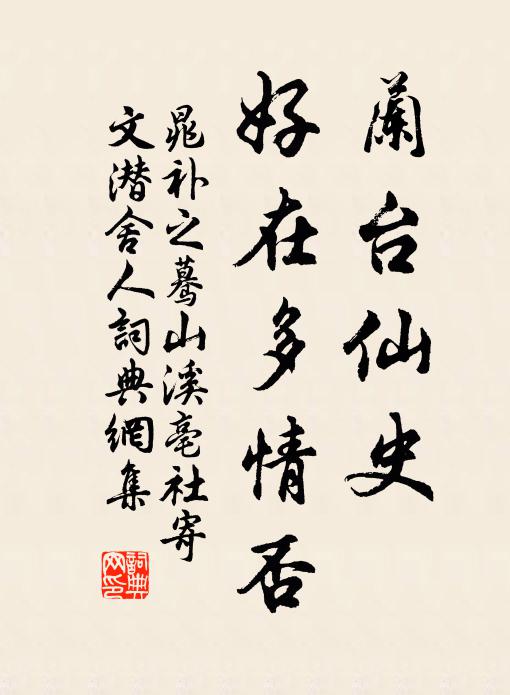 蘭台仙史
好在多情否
晁补之驀山溪亳社寄
文潜舍人詞典網集
詞典
网印